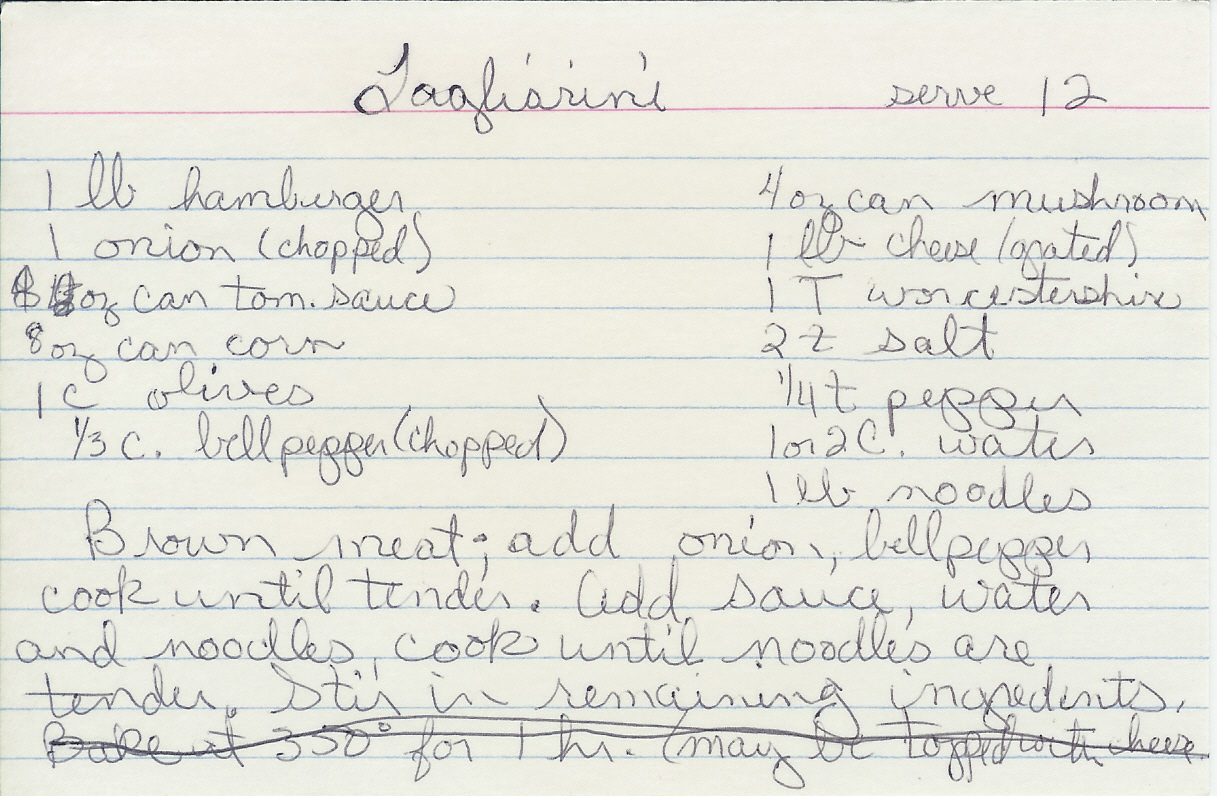 Tagliarini serve 12
1 lb hamburger
1 onion (chopped)
oz can tom. sauce
8oz can corn
1 C olives
1/3 C. bell pepper (chopped)
4oz can mushroom
1 lb cheese (grated)
1 T worcestershire
2 t salt
1/4 t pepper
1 or 2 C. water
1 lb noodles
Brown meat; add onion, bell pepper
cook until tender. Add sauce, water
and noodles, cook until noodles are
tender. Stir in remaining ingredents.
Bake at 350° for 1 hr. (may be topped with cheese